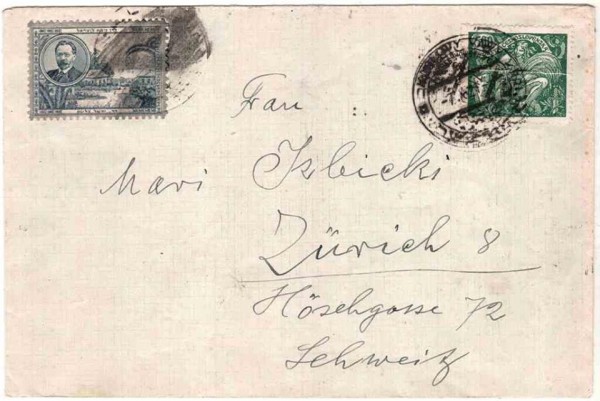 Frau
Mavi Isbicki
Zürich 8
Höschgasse 72
Schweiz